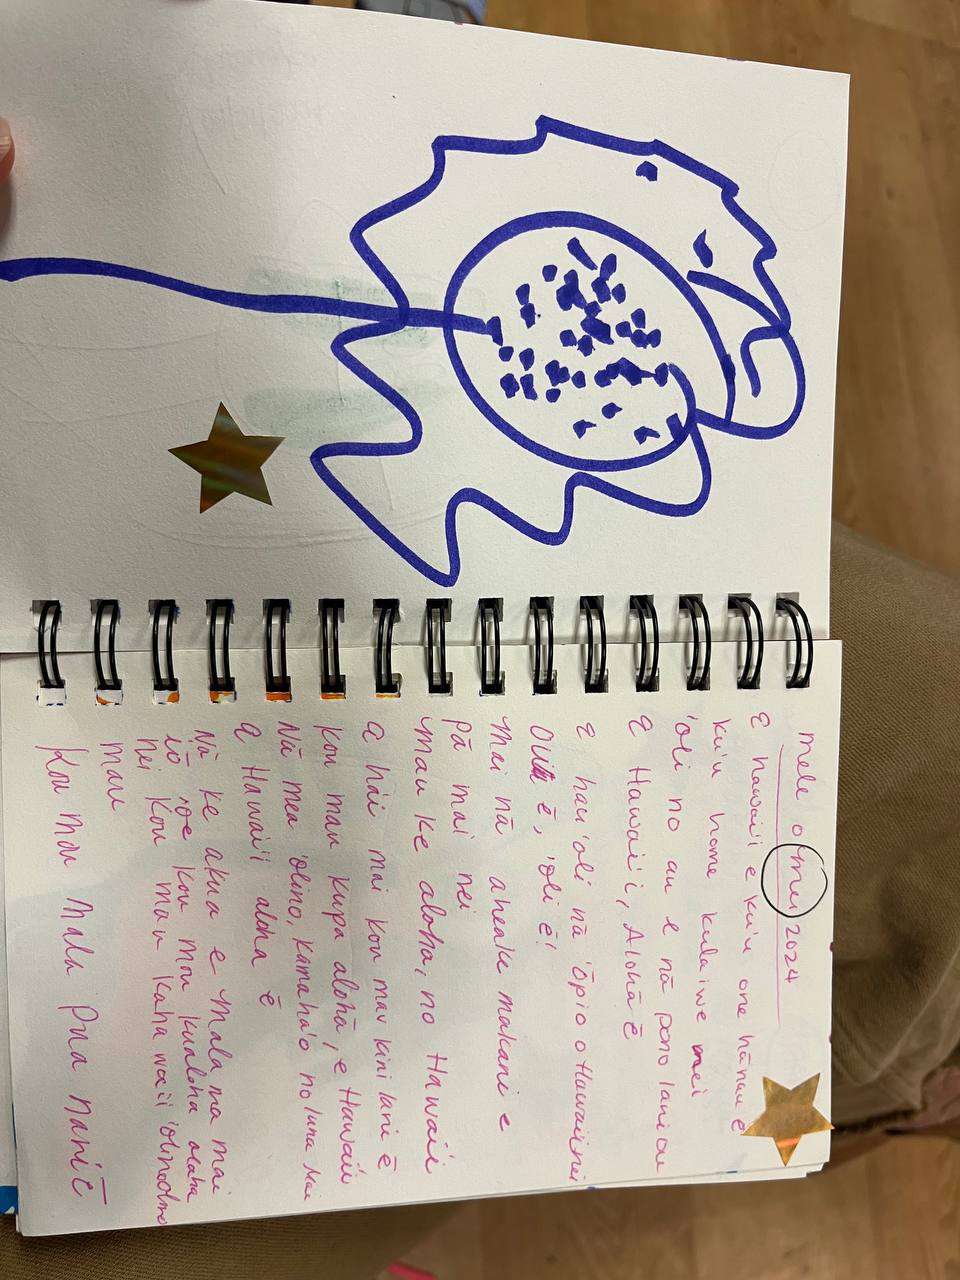 mele o may 2024
E hawai'i e ku'u one hānau e
ku'u home kulaiwi nei
'oli no au i nā pono lani ou
E Hawai'i, Alohā ē
E hau'oli nā 'ōpio o Hawaii nei
Oli ē, 'oli ē!
Mai nā aheahe makani e
pā mai nei
mau ke aloha, no Hawaii
E hāi mai kou mau kini lani ē
kou mau kupa alohā, e Hawaii
Nā mea 'ōlino, kamaha'o no luna mai
E Hawai'i aloha ē
Nā ke akua e Mala na mai
iō 'oe kou mau kualoha aloha
nei kou mau kahawai 'ōlinolino
mau
Kou mau mala pua nani ē